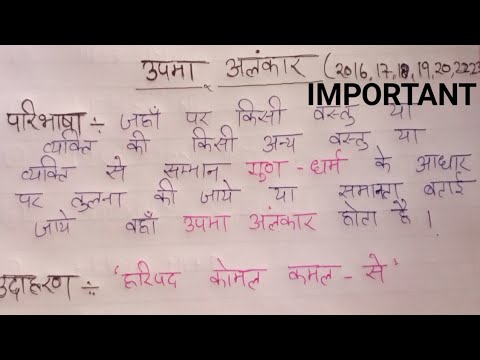 उपमा अलंकार (2016,17,18,19,20,22,23
IMPORTANT
परिभाषा ÷ जहाँ पर किसी वस्तु या
व्यक्ति की किसी अन्य वस्तु या
व्यक्ति से सम्मान गुण - धर्म के आधार
पर तुलना की जाये या समानता बताई
जाये वहाँ उपमा अलंकार होता है ।
उदाहरण ÷ 'हरिपद कोमल कमल - से'